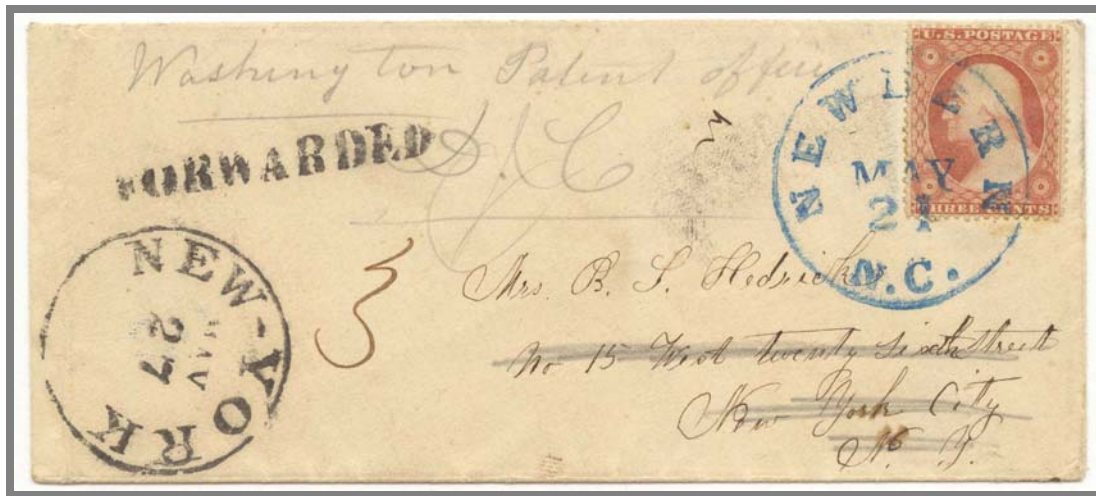 Washington Patent office
D/C
FORWARDED
U.S. POSTAGE
THREE CENTS
NEWBERN
MAY
21
N.C.
NEW-YORK
MAY
27
3
Mrs. B. S. Hedrick
No 15 West twenty Sixth Street
New York City
N. Y.